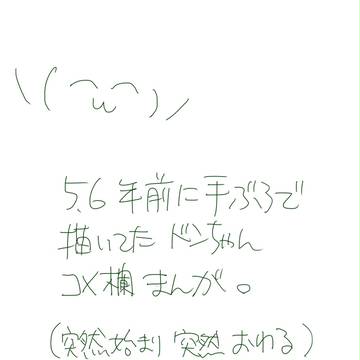 \( ^ω^ )/
5.6年前に手ぶろで
描いてたドンちゃん
コメ欄まんが。
(突然始まり突然おわる)